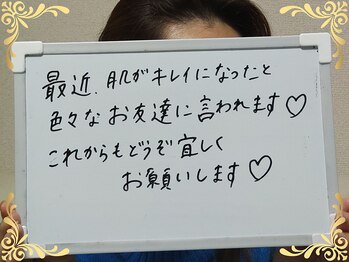 最近、肌がキレイになったと
色々なお友達に言われます♡
これからもどうぞ宜しく
お願いします♡